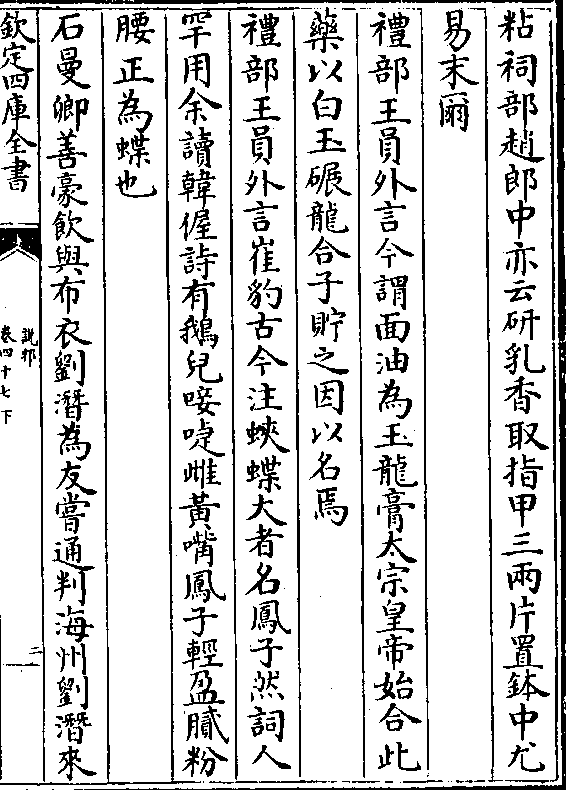 粘祠部趙郎中亦云研乳香取指甲三兩片置鉢中尤
易末爾
禮部王員外言今謂面油為玉龍膏太宗皇帝始合此
藥以白玉碾龍合子貯之因以名焉
禮部王員外言崔豹古今注蛺蝶大者名鳳子然詞人
罕用余讀韓偓詩有鵝兒唼啑雌黃嘴鳳子輕盈膩粉
腰正為蝶也
石曼卿善豪飲與布衣劉潛為友嘗通判海州劉潛來
欽定四庫全書
說郛
卷四十七下
三